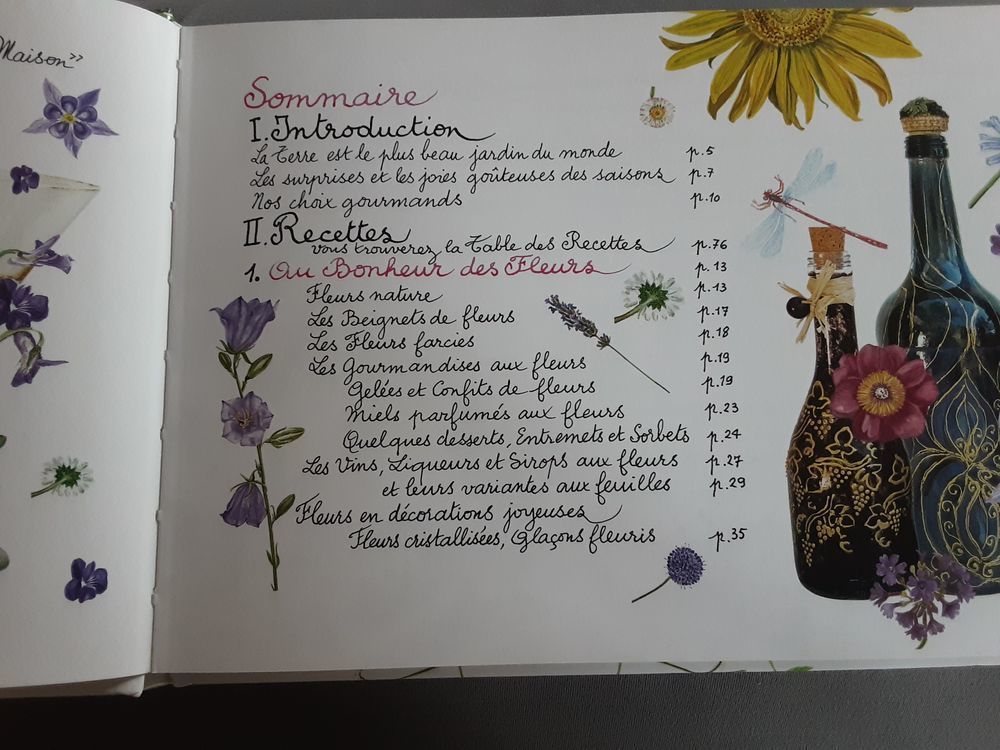 Maison"
Sommaire
I. Introduction
La Terre est le plus beau jardin du monde p.5
Les surprises et les joies goûteuses des saisons p.7
Nos choix gourmands p.10
II. Recettes
vous trouverez la Table des Recettes p.76
1. Au Bonheur des Fleurs p.13
Fleurs nature p.13
Les Beignets de fleurs p.17
Les Fleurs farcies p.18
Les Gourmandises aux fleurs p.19
Gelées et Confits de fleurs p.19
Miels parfumés aux fleurs p.23
Quelques desserts, Entremets et Sorbets p.24
Les Vins, Liqueurs et Sirops aux fleurs p.27
et leurs variantes aux feuilles p.29
Fleurs en décorations joyeuses
Fleurs cristallisées, Glaçons fleuris p.35